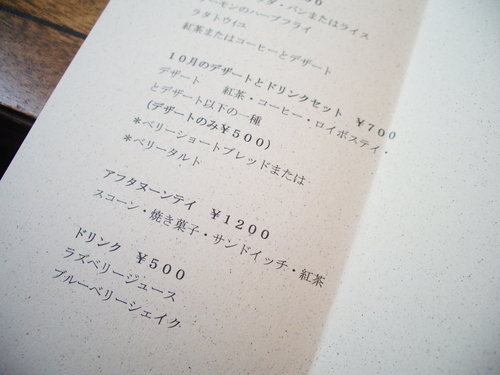 パンまたはライス
サーモンのハーブフライ
ラタトウイユ
紅茶またはコーヒーとデザート
10月のデザートとドリンクセット ￥700
デザート 紅茶・コーヒー・ロイボスティ・
とデザート以下の一種
(デザートのみ￥500)
*ベリーショートブレッドまたは
*ベリータルト
アフタヌーンティ ￥1200
スコーン・焼き菓子・サンドイッチ・紅茶
ドリンク ￥500
ラズベリージュース
ブルーベリーシェイク